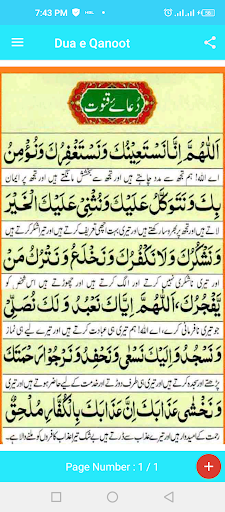 7:43 PM
Dua e Qanoot
دعائے قنوت
اَللّٰهُمَّ اِنَّا نَسْتَعِيْنُكَ وَنَسْتَغْفِرُكَ وَنُؤْمِنُ
اے اللہ! ہم تجھ سے مدد چاہتے ہیں اور تجھ سے بخشش مانگتے ہیں اور تجھ پر ایمان
بِكَ وَنَتَوَكَّلُ عَلَيْكَ وَنُثْنِيْ عَلَيْكَ الْخَيْرَ
لاتے ہیں اور تجھ پر بھروسہ رکھتے ہیں اور تیری بہت اچھی تعریف کرتے ہیں اور تیرا شکر کرتے ہیں
وَنَشْكُرُكَ وَلَا نَكْفُرُكَ وَنَخْلَعُ وَنَتْرُكُ مَنْ
اور تیری ناشکری نہیں کرتے اور الگ کرتے ہیں اور چھوڑتے ہیں اس شخص کو
يَّفْجُرُكَ اَللّٰهُمَّ اِيَّاكَ نَعْبُدُ وَلَكَ نُصَلِّيْ
جو تیری نافرمانی کرے اے اللہ! ہم تیری ہی عبادت کرتے ہیں اور تیرے ہی لئے نماز
وَنَسْجُدُ وَاِلَيْكَ نَسْعٰى وَنَحْفِدُ وَنَرْجُوْا رَحْمَتَكَ
پڑھتے اور سجدہ کرتے ہیں اور تیری ہی طرف دوڑتے اور خدمت کے لیے حاضر ہوتے ہیں اور تیری
وَنَخْشٰى عَذَابَكَ اِنَّ عَذَابَكَ بِالْكُفَّارِ مُلْحِقٌ
رحمت کے امیدوار ہیں اور تیرے عذاب سے ڈرتے ہیں بے شک تیرا عذاب کافروں کو ملنے والا ہے۔
Page Number : 1 / 1